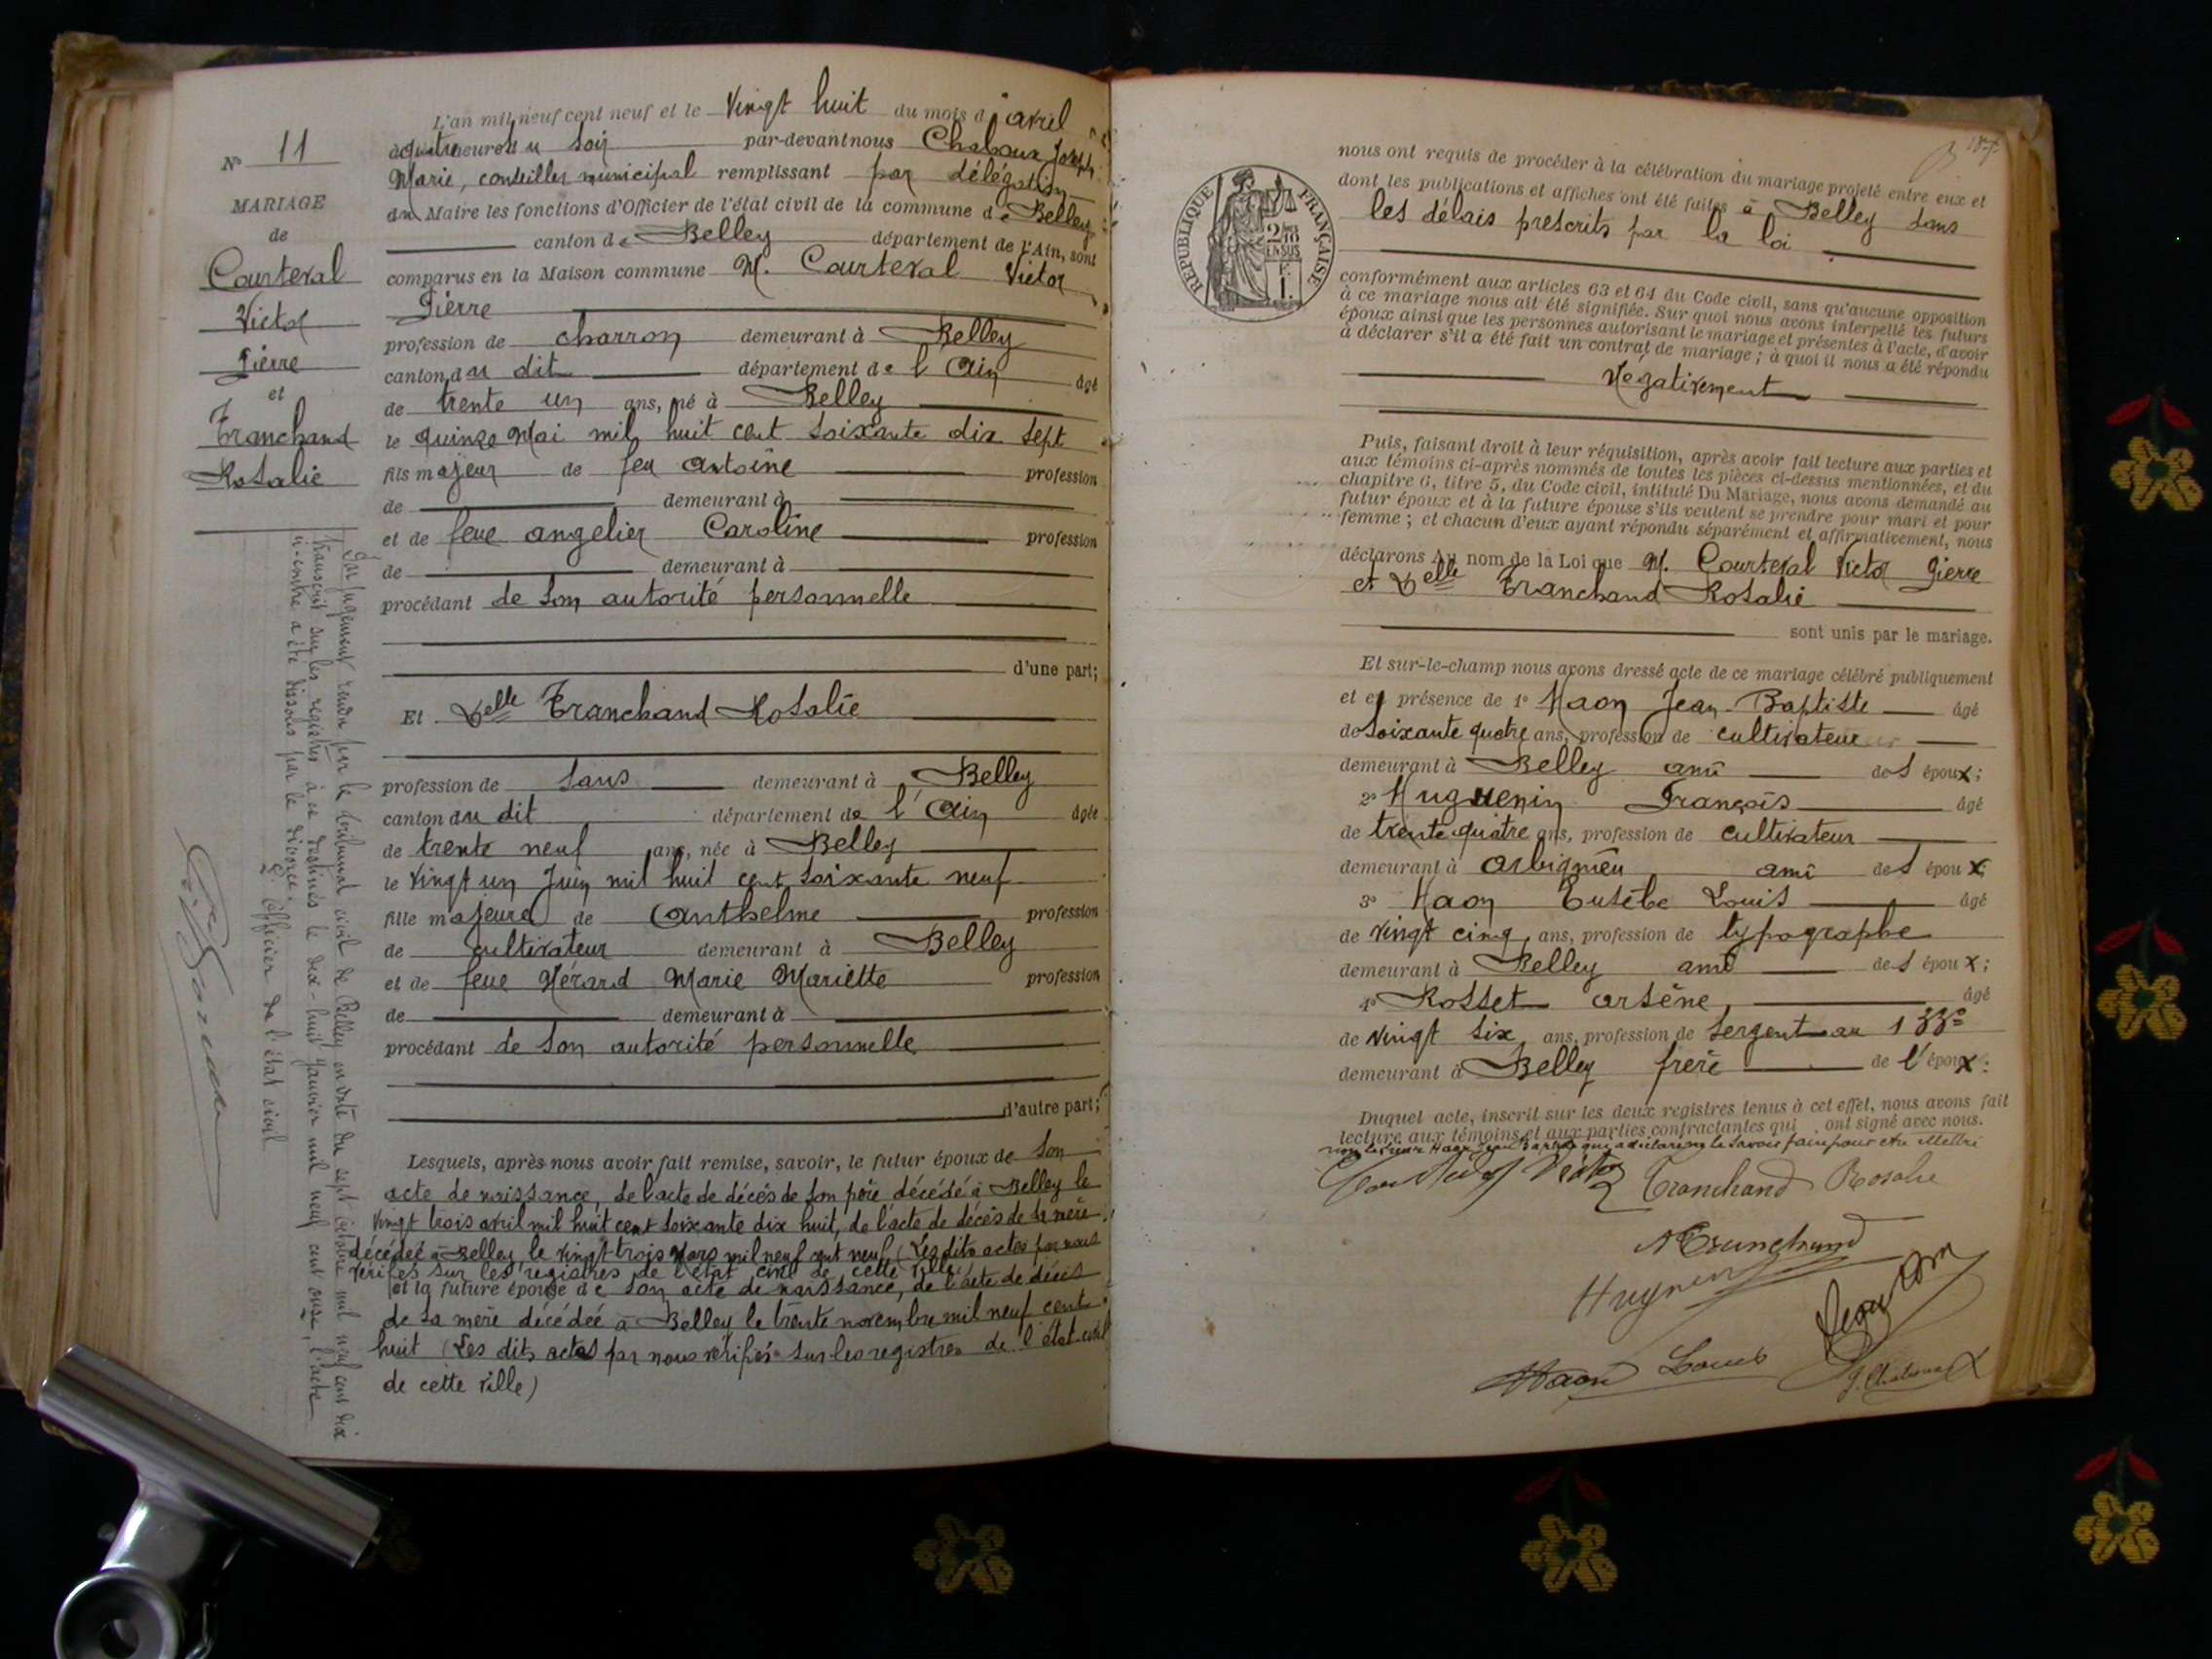 N° 11
MARIAGE
de
Courteval
Victor
Pierre
et
Tranchand
Rosalie
L'an mil neuf cent neuf et le Vingt huit du mois d'avril
à quatre heures du soir par-devant nous Chaboux Joseph
Marie, conseiller municipal remplissant par délégation
du Maire les fonctions d'Officier de l'état civil de la commune de Belley
canton de Belley département de l'Ain, sont
comparus en la Maison commune M. Courteval Victor
Pierre
profession de charron demeurant à Belley
canton du dit département de l'Ain âgé
de trente un ans, né à Belley
le quinze Mai mil huit cent soixante dix sept
fils majeur de feu Antoine profession
de demeurant à
et de feue Angelier Caroline profession
de demeurant à
procédant de son autorité personnelle
d'une part;
Et Delle Tranchand Rosalie
profession de sans demeurant à Belley
canton du dit département de l'Ain âgée
de trente neuf ans, née à Belley
le vingt un Juin mil huit cent soixante neuf
fille majeure de Anthelme profession
de cultivateur demeurant à Belley
et de feue Hérard Marie Mariette profession
de demeurant à
procédant de son autorité personnelle
d'autre part;
Lesquels, après nous avoir fait remise, savoir, le futur époux de son
acte de naissance, de l'acte de décès de son père décédé à Belley le
vingt trois avril mil huit cent soixante dix huit, de l'acte de décès de sa mère
décédée à Belley le vingt trois Mars mil neuf cent neuf (Les dits actes par nous
vérifiés sur les registres de l'état civil de cette ville)
et la future épouse de son acte de naissance, de l'acte de décès
de sa mère décédée à Belley le trente novembre mil neuf cent
huit (Les dits actes par nous vérifiés sur les registres de l'état civil
de cette ville)
Par jugement rendu par le tribunal civil de Belley en date du sept octobre mil neuf cent dix
transcrit sur les registres à ce destinés le dix-huit janvier mil neuf cent onze, l'acte
ci-contre a été dissous par le divorce.
L'officier de l'état civil
187
RÉPUBLIQUE FRANÇAISE
2/10
EN SUS
1 F.
nous ont requis de procéder à la célébration du mariage projeté entre eux et
dont les publications et affiches ont été faites à Belley dans
les délais prescrits par la loi
conformément aux articles 63 et 64 du Code civil, sans qu'aucune opposition
à ce mariage nous ait été signifiée. Sur quoi nous avons interpellé les futurs
époux ainsi que les personnes autorisant le mariage et présentes à l'acte, d'avoir
à déclarer s'il a été fait un contrat de mariage ; à quoi il nous a été répondu
Négativement
Puis, faisant droit à leur réquisition, après avoir fait lecture aux parties et
aux témoins ci-après nommés de toutes les pièces ci-dessus mentionnées, et du
chapitre 6, titre 5, du Code civil, intitulé Du Mariage, nous avons demandé au
futur époux et à la future épouse s'ils veulent se prendre pour mari et pour
femme ; et chacun d'eux ayant répondu séparément et affirmativement, nous
déclarons Au nom de la Loi que M. Courteval Victor Pierre
et Delle Tranchand Rosalie
sont unis par le mariage.
Et sur-le-champ nous avons dressé acte de ce mariage célébré publiquement
et en présence de 1° Haon Jean-Baptiste âgé
de soixante quatre ans, profession de cultivateur
demeurant à Belley ami des époux;
2° Huguenin François âgé
de trente quatre ans, profession de cultivateur
demeurant à Arbignieu ami des époux;
3° Haon Eusèbe Louis âgé
de vingt cinq ans, profession de typographe
demeurant à Belley ami des époux;
4° Rosset Arsène âgé
de vingt six ans, profession de sergent au 133e
demeurant à Belley frère de l'époux;
Duquel acte, inscrit sur les deux registres tenus à cet effet, nous avons fait
lecture aux témoins et aux parties contractantes qui ont signé avec nous.
Courteval Victor Tranchand Rosalie
A Tranchand
Huguenin
Haon Louis
J. Chaboux